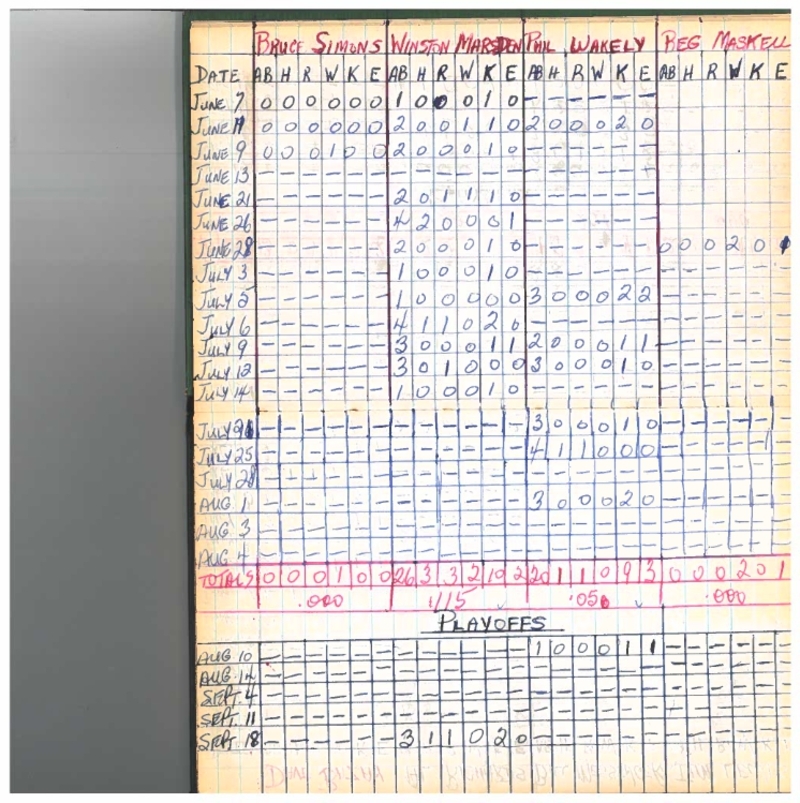 BRUCE SIMONS WINSTON MARSDEN PHIL WAKELY REG MASKELL
DATE AB H R W K E AB H R W K E AB H R W K E AB H R W K E
JUNE 7 0 0 0 0 0 0 1 0 0 0 1 0 – – – – – –
JUNE 11 0 0 0 0 0 0 2 0 0 1 1 0 2 0 0 0 2 0
JUNE 9 0 0 0 1 0 0 2 0 0 0 1 0 – – – – – –
JUNE 13 – – – – – – – – – – – – – – – – – –
JUNE 21 – – – – – – 2 0 1 1 1 0 – – – – – –
JUNE 26 – – – – – – 4 2 0 0 0 1 – – – – – –
JUNE 28 – – – – – – 2 0 0 0 1 0 – – – – – – 0 0 0 2 0 1
JULY 3 – – – – – – 1 0 0 0 1 0 – – – – – – – – – – – –
JULY 5 – – – – – – 1 0 0 0 0 0 3 0 0 0 2 2 – – – – – –
JULY 6 – – – – – – 4 1 1 0 2 0 – – – – – – – – – – – –
JULY 9 – – – – – – 3 0 0 0 1 1 2 0 0 0 1 1 – – – – – –
JULY 12 – – – – – – 3 0 1 0 0 0 3 0 0 0 1 0 – – – – – –
JULY 14 – – – – – – 1 0 0 0 1 0 – – – – – – – – – – – –
JULY – – – – – – – – – – – – 3 0 0 0 1 0 – – – – – –
JULY 25 – – – – – – – – – – – – 4 1 1 0 0 0 – – – – – –
JULY 28 – – – – – – – – – – – – – – – – – – – – – – – –
AUG 1 – – – – – – – – – – – – 3 0 0 0 2 0 – – – – – –
AUG 3 – – – – – – – – – – – – – – – – – – – – – – – –
AUG 4 – – – – – – – – – – – – – – – – – – – – – – – –
TOTALS 0 0 0 1 0 0 26 3 3 2 10 2 20 1 1 0 9 3 0 0 0 2 0 1
.000 .115 .050 .000
PLAYOFFS
AUG 10 – – – – – – – – – – – – 1 0 0 0 1 1 – – – – – –
AUG 14 – – – – – – – – – – – – – – – – – – – – – – – –
SEPT. 4 – – – – – – – – – – – – – – – – – – – – – – – –
SEPT. 11 – – – – – – – – – – – – – – – – – – – – – – – –
SEPT 18 – – – – – – 3 1 1 0 2 0 – – – – – – – – – – – –